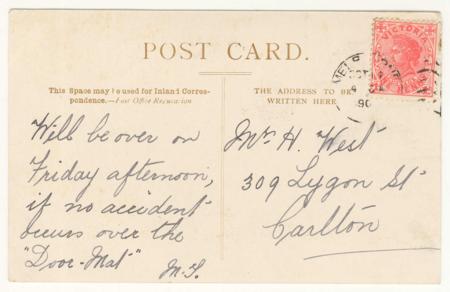 POST CARD.
This Space may be used for Inland Corres-
pondence.—Post Office Regulation
THE ADDRESS TO BE
WRITTEN HERE
VICTORIA
Will be over on
Friday afternoon,
if no accident
occurs over the
"Door-Mat"
M.S.
Mr H. West
309 Lygon St
Carlton